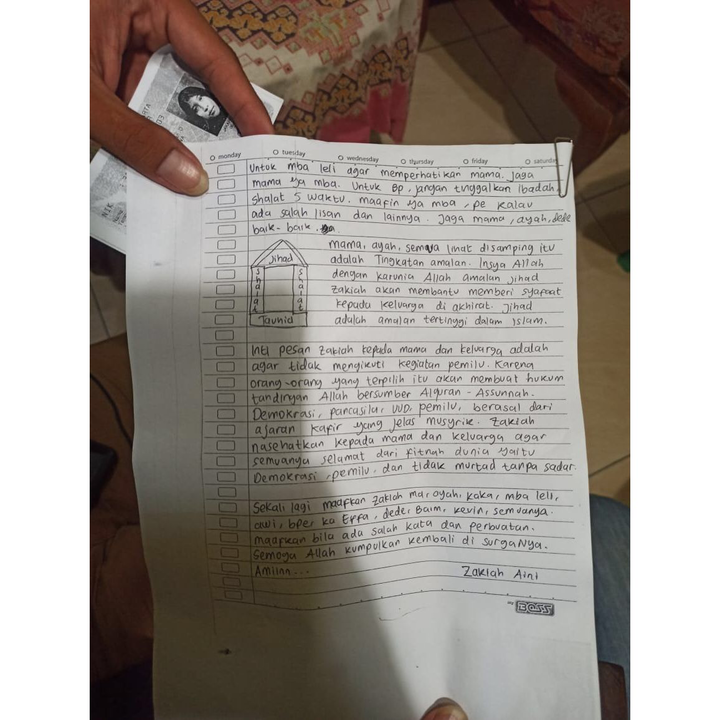 monday tuesday wednesday thursday friday saturday
Untuk mba leli agar memperhatikan mama. Jaga
mama ya mba. Untuk Bp, jangan tinggalkan ibadah.
shalat 5 waktu. maafin ya mba, pe kalau
ada salah lisan dan lainnya. Jaga mama, ayah, dede
baik-baik.
mama, ayah, semua lihat disamping itu
adalah Tingkatan amalan. Insya Allah
dengan karunia Allah amalan jihad
zakiah akan membantu memberi syafaat
kepada keluarga di akhirat. Jihad
adalah amalan tertinggi dalam islam.
Jihad
shalat
shalat
Tauhid
Inti pesan zakiah kepada mama dan keluarga adalah
agar tidak mengikuti kegiatan pemilu. Karena
orang-orang yang terpilih itu akan membuat hukum
tandingan Allah bersumber Alquran - Assunnah.
Demokrasi, pancasila, UUD, pemilu, berasal dari
ajaran kafir yang jelas musyrik. Zakiah
nasehatkan kepada mama dan keluarga agar
semuanya selamat dari fitnah dunia yaitu
Demokrasi, pemilu. dan tidak murtad tanpa sadar.
Sekali lagi maafkan zakiah ma, ayah, kaka, mba leli,
awi, bpe, ka Effa, dede, Baim, kevin, semuanya.
maafkan bila ada salah kata dan perbuatan.
Semoga Allah kumpulkan kembali di surgaNya.
Amiinn...
Zakiah Aini
my BOSS